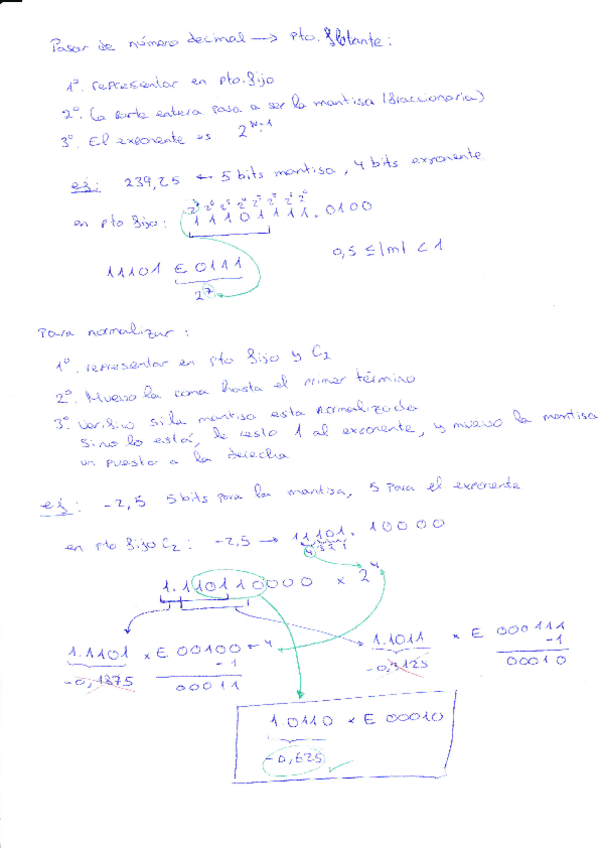 Pasar de número decimal → pto. flotante:
1º. representar en pto. fijo
2º. La parte entera pasa a ser la mantisa (fraccionaria)
3º. El exponente es 2^N-1
ej: 239,25 ← 5 bits mantisa, 4 bits exponente
2^7 2^6 2^5 2^4 2^3 2^2 2^1 2^0
en pto fijo: 11101111.0100
0,5 ≤ |m| < 1
11101 E 0111
2^7
Para normalizar:
1º. representar en pto fijo y C2
2º. Muevo la coma hasta el primer término
3º. Verifico si la mantisa esta normalizada
Si no lo está, le resto 1 al exponente, y muevo la mantisa
un puesto a la derecha
ej: -2,5 5 bits para la mantisa, 5 para el exponente
en pto fijo C2: -2,5 → 11101.10000
4 3 2 1
1.110110000 x 2^4
1.1101 x E 00100 ← 4
-1
-0,1875 00011
1.1011 x E 000111
-1
-0,3125 00010
1.0110 x E 00010
-0,625 ✓